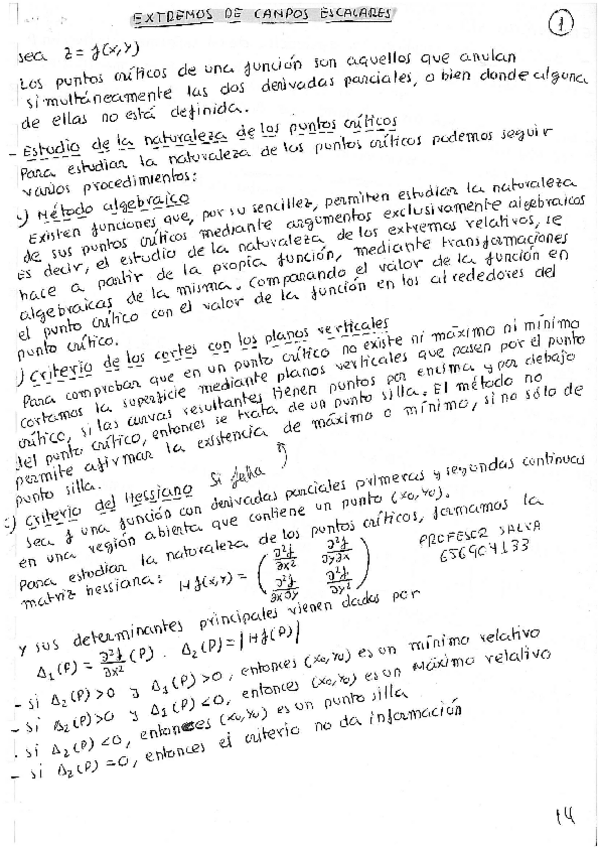 EXTREMOS DE CAMPOS ESCALARES
1
sea z = f(x,y)
Los puntos críticos de una función son aquellos que anulan
simultáneamente las dos derivadas parciales, o bien donde alguna
de ellas no está definida.
- Estudio de la naturaleza de los puntos críticos
Para estudiar la naturaleza de los puntos críticos podemos seguir
varios procedimientos:
) Método algebraico
Existen funciones que, por su sencillez, permiten estudiar la naturaleza
de sus puntos críticos mediante argumentos exclusivamente algebraicos
Es decir, el estudio de la naturaleza de los extremos relativos, se
hace a partir de la propia función, mediante transformaciones
algebraicas de la misma. Comparando el valor de la función en
el punto crítico con el valor de la función en los alrededores del
punto crítico.
) Criterio de los cortes con los planos verticales
Para comprobar que en un punto crítico no existe ni máximo ni mínimo
cortamos la superficie mediante planos verticales que pasen por el punto
crítico, si las curvas resultantes tienen puntos por encima y por debajo
del punto crítico, entonces se trata de un punto silla. El método no
permite afirmar la existencia de máximo o mínimo, si no sólo de
punto silla.
) Criterio del Hessiano Si falla
Sea f una función con derivadas parciales primeras y segundas continuas
en una región abierta que contiene un punto (x₀,y₀).
Para estudiar la naturaleza de los puntos críticos, formamos la
matriz hessiana: Hf(x,y) = (∂²f/∂x² ∂²f/∂y∂x
∂²f/∂x∂y ∂²f/∂y²)
PROFESOR SALVA
656904133
y sus determinantes principales vienen dados por
Δ₁(P) = ∂²f/∂x² (P) . Δ₂(P) = |Hf(P)|
- Si Δ₂(P) > 0 y Δ₁(P) > 0, entonces (x₀,y₀) es un mínimo relativo
- Si Δ₂(P) > 0 y Δ₁(P) < 0, entonces (x₀,y₀) es un Máximo relativo
. Si Δ₂(P) < 0, entonces (x₀,y₀) es un punto silla
- Si Δ₂(P) = 0, entonces el criterio no da información
14